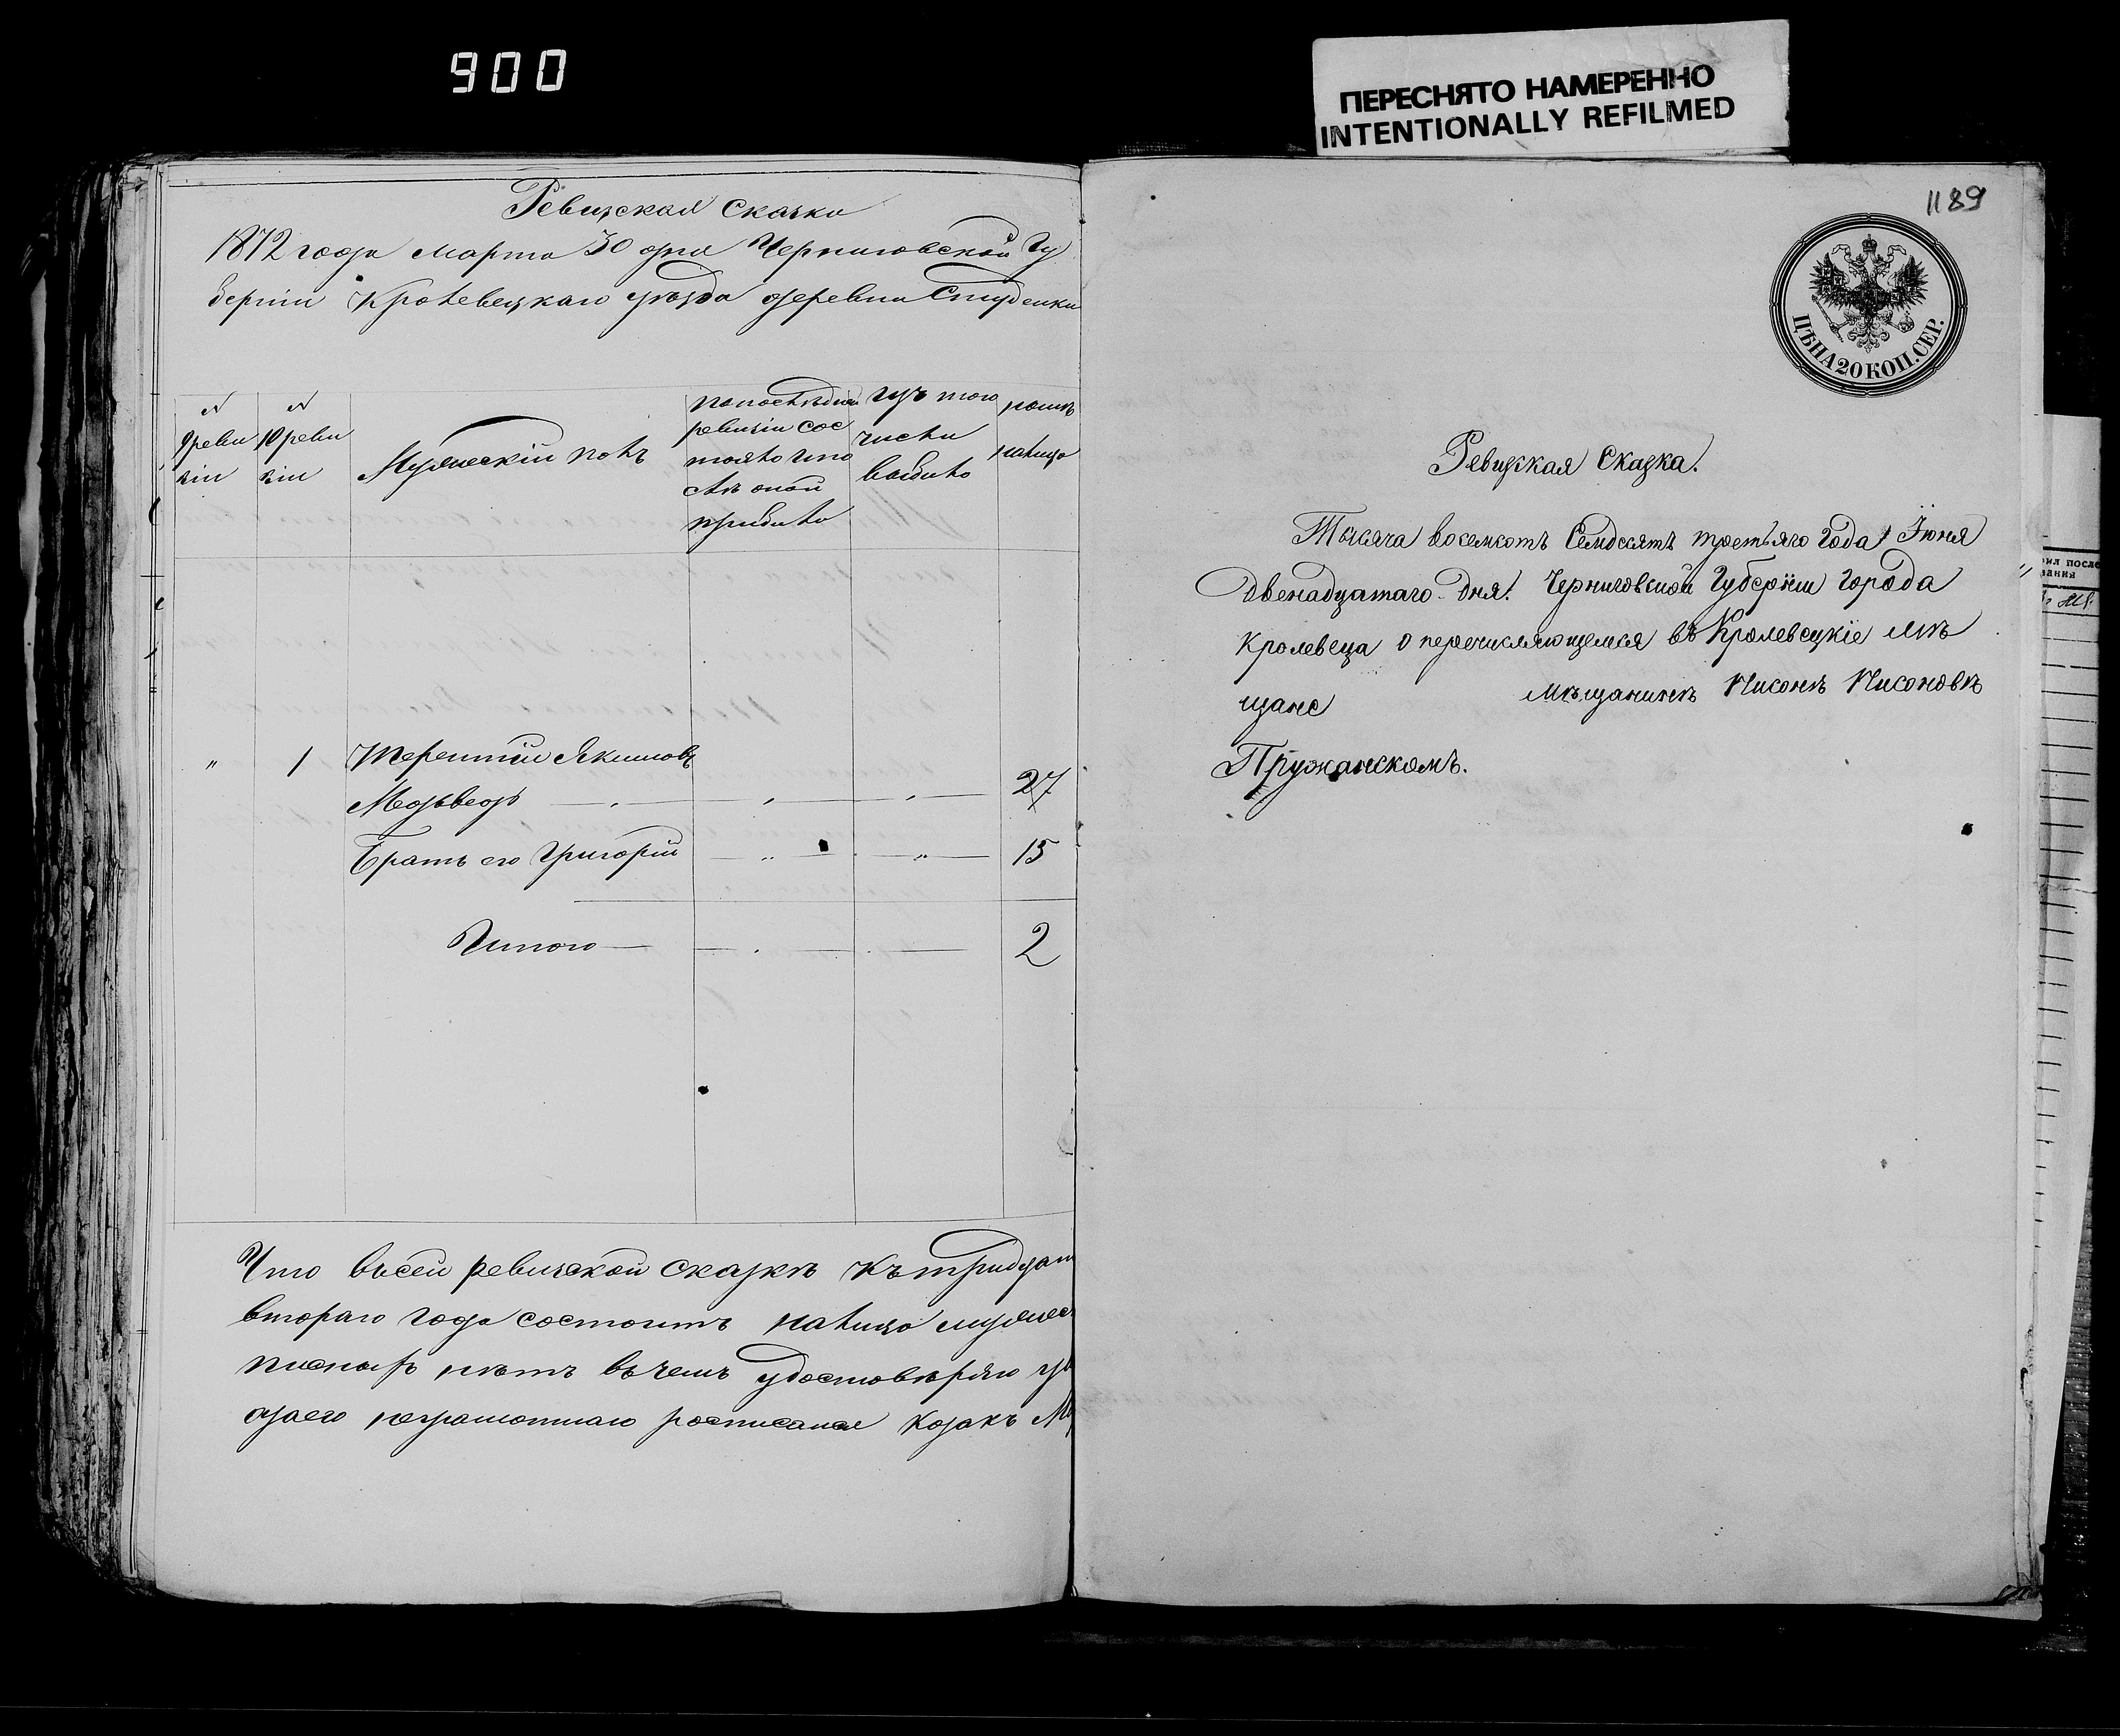 900
ПЕРЕСНЯТО НАМЕРЕННО
INTENTIONALLY REFILMED
Ревизская Сказка
1872 года марта 30 дня Черниговской Гу
берніи Кролевецкаго уѣзда деревни Студенки
№ 9 реви зіи
№ 10 реви зіи
Мужескій полъ
По последней ревизіи сос тояло или послѣ оной прибыло
Изъ того числа выбыло
нынѣ налицо
" 1 Терентій Якимовъ
Медьведь 27
Братъ его Григорій 15
Итого 2
Что въсей ревизской сказкѣ къ тридцат
втораго года состоитъ налицо мужес
нѣтъ въ чемъ удостовѣряю
заего неграмотнаго росписался козакъ
1189
ЦѢНА 20 КОП. СЕР.
Ревизская Сказка.
Тысяча восемсотъ Семдсятъ третьяго Года Іюня
двенадцатаго дня. Черниговской Губерніи Города
Кролевеца о перечисляющемся въ Кролевецкіе мѣ
щане мѣщанинѣ Нисонѣ Нисоновѣ
Пружанскомъ.